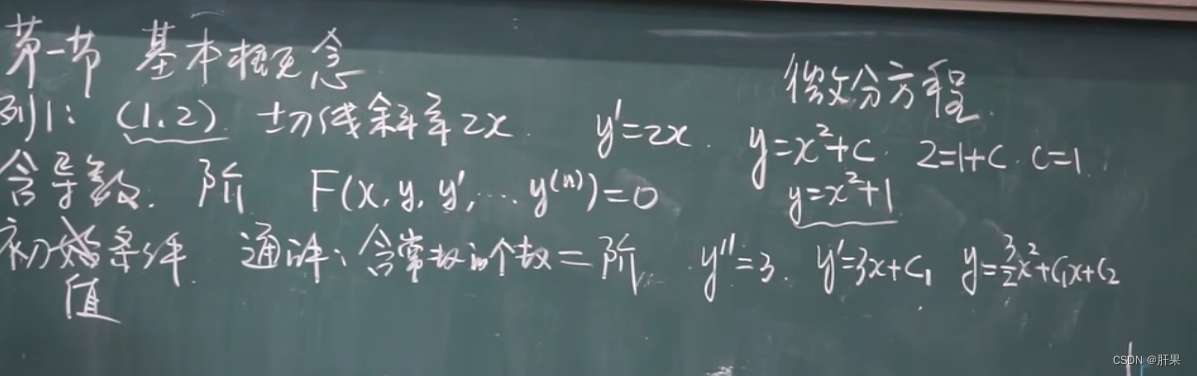 第一节 基本概念
微分方程.
列1: (1,2). 切线斜率2x. y'=2x. y=x²+C. 2=1+C. C=1.
含导数. 阶 F(x,y,y',…y⁽ⁿ⁾)=0 y=x²+1
初始条件 通解: 含常数的个数=阶. y''=3. y'=3x+C₁ y=3/2x²+C₁x+C₂
值
CSDN @肝果